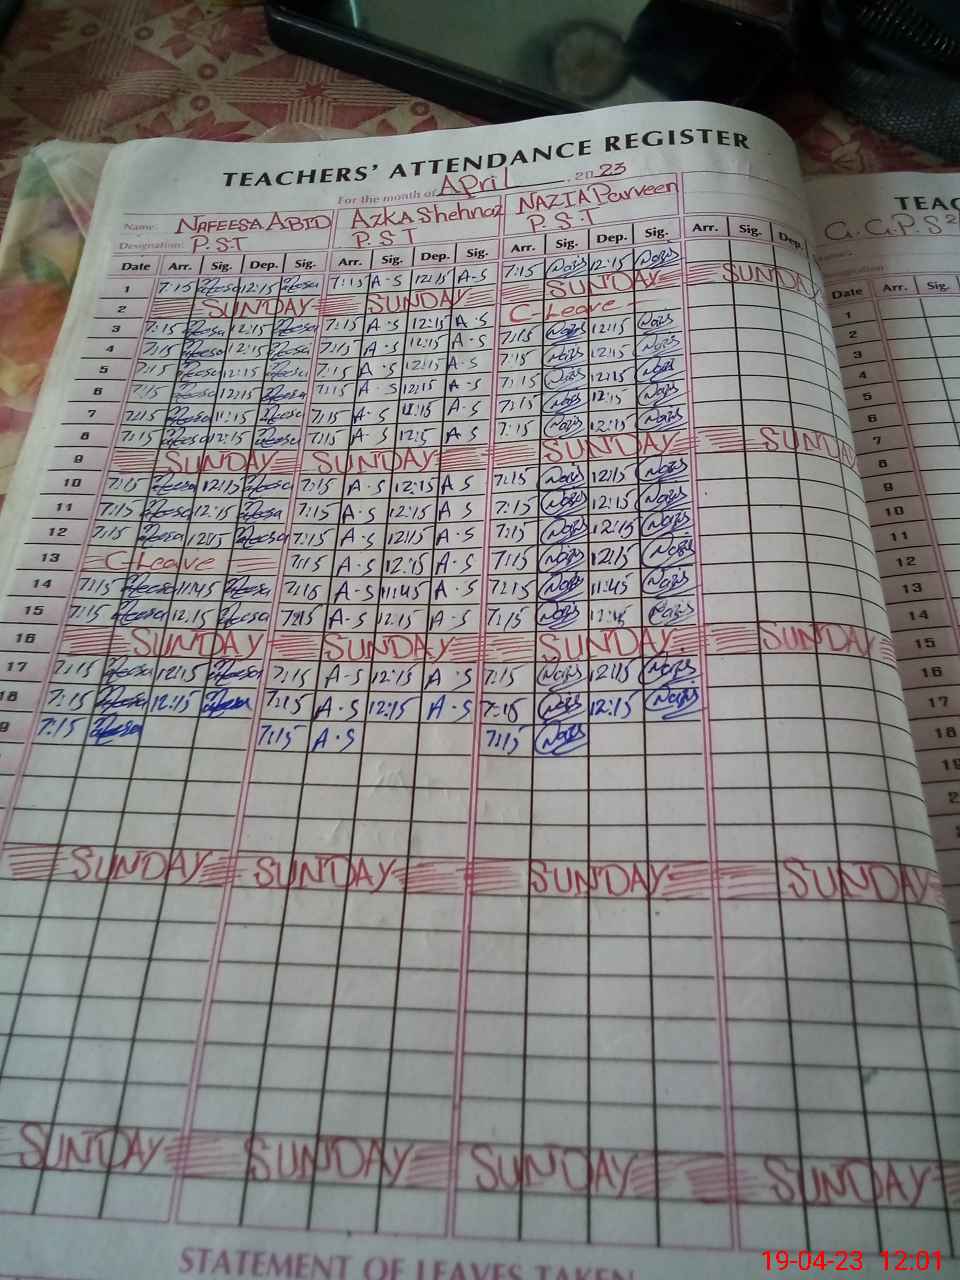 TEACHERS' ATTENDANCE REGISTER
For the month of April, 2023
Name: NAFEESA ABID AZKA Shehnaz NAZIA Parveen
Designation: P.S.T P.S.T P.S.T
Date Arr. Sig. Dep. Sig. Arr. Sig. Dep. Sig. Arr. Sig. Dep. Sig. Arr. Sig. Dep.
1 7:15 12:15 7:15 A-S 12:15 A-S 7:15 12:15
2 SUNDAY SUNDAY SUNDAY SUNDAY
3 7:15 12:15 7:15 A-S 12:15 A-S C-Leave
4 7:15 12:15 7:15 A-S 12:15 A-S 7:15 12:15
5 7:15 12:15 7:15 A-S 12:15 A-S 7:15 12:15
6 7:15 12:15 7:15 A-S 12:15 A-S 7:15 12:15
7 7:15 7:15 A-S A-S 7:15 12:15
8 7:15 12:15 7:15 A-S A S 7:15 12:15
9 SUNDAY SUNDAY SUNDAY SUNDAY
10 7:15 12:15 7:15 A-S 12:15 A S 7:15 12:15
11 7:15 12:15 7:15 A-S 12:15 A S 7:15 12:15
12 7:15 12:15 7:15 A-S 12:15 A S 7:15 12:15
13 C-Leave 7:15 A-S 12:15 A-S 7:15 12:15
14 7:15 11:45 7:15 A-S 11:45 A-S 7:15 11:45
15 7:15 12:15 7:15 A-S 12:15 A-S 7:15
16 SUNDAY SUNDAY SUNDAY SUNDAY
17 7:15 12:15 7:15 A-S 12:15 A-S 7:15 12:15
18 7:15 12:15 7:15 A-S 12:15 A-S 7:15 12:15
9 7:15 7:15 A-S 7:15
SUNDAY SUNDAY SUNDAY SUNDAY
SUNDAY SUNDAY SUNDAY SUNDAY
STATEMENT OF LEAVES TAKEN
TEAC
G.G.P.S
Date Arr. Sig.
1
2
3
4
5
6
7
8
9
10
11
12
13
14
15
16
17
18
19
2
19-04-23 12:01